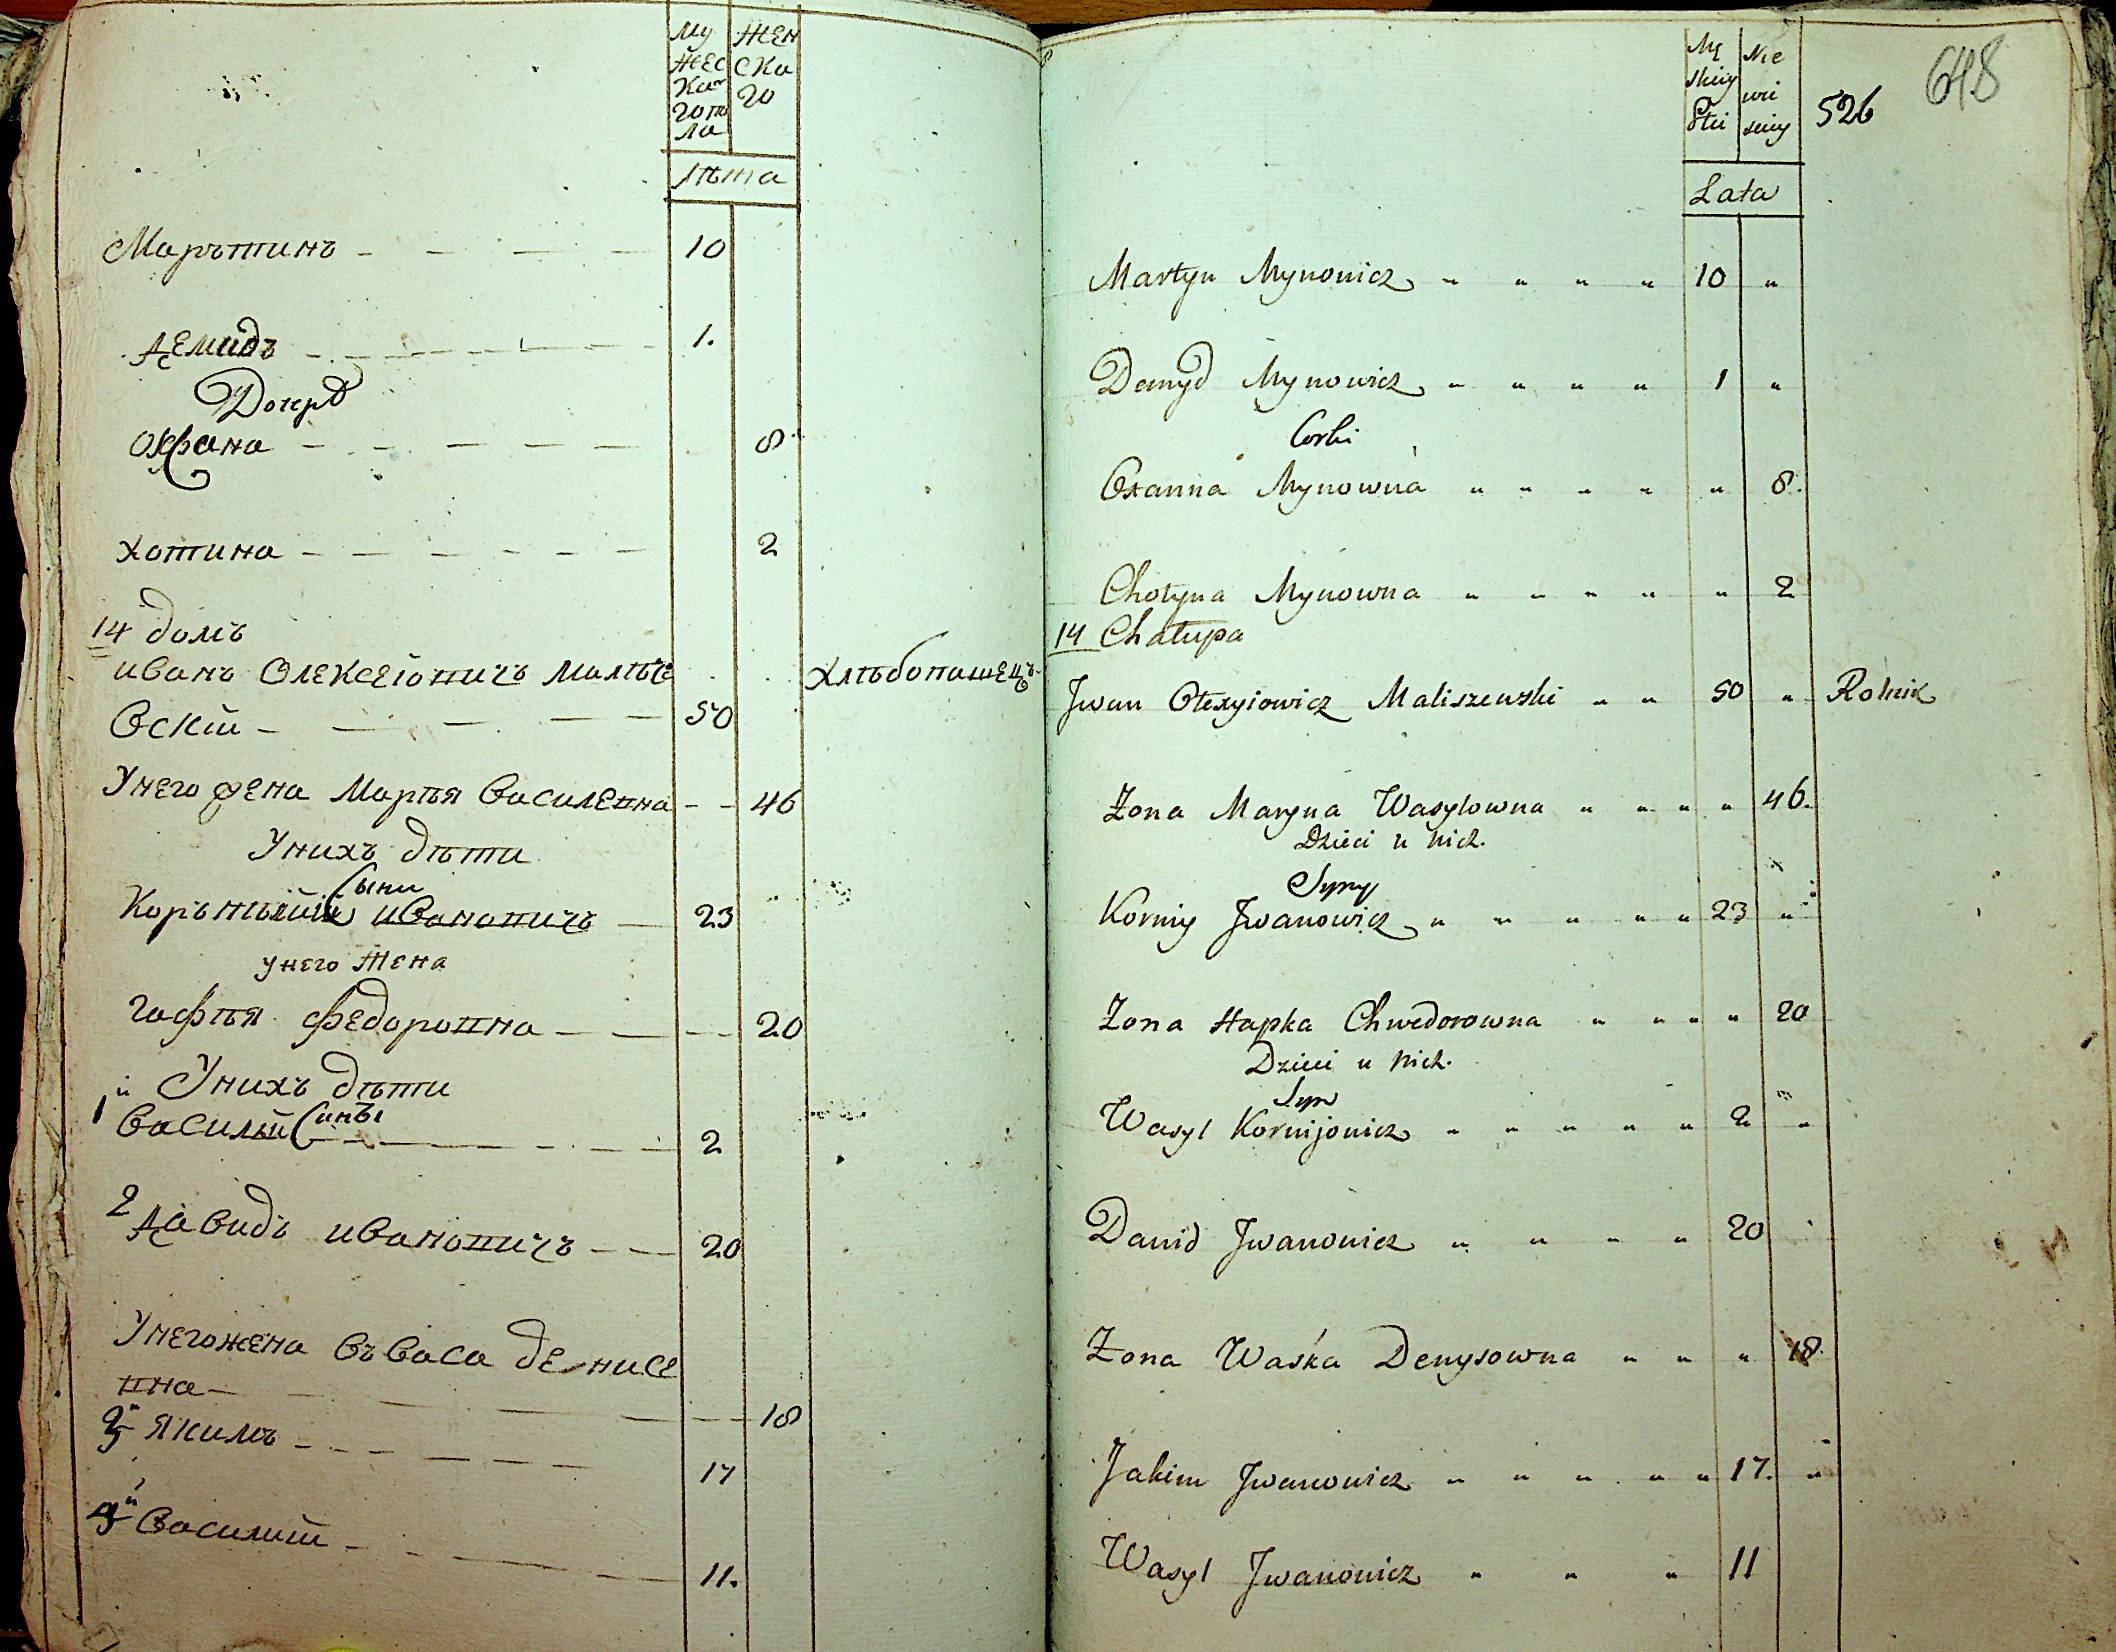 Му
жес
ка
го по
ла
жен
ска
го
лѣта
Марътинъ 10
демидъ 1.
Дочерѣ
Оксана 8.
хотина 2
14 домъ
иванъ Олексеіовичъ Малѣше
вскій 50 хлѣбопашецъ
Унего жена Маръя Василевна 46
Унихъ дѣти
Сыни
Коръній ивановичъ 23
унего жена
гафъя федоровна 20
Унихъ дѣти
1й Василій Сины 2
2 давидъ ивановичъ 20
Унего жена въваса денисе
вна 18
3й якимъ 17
4й Василий 11.
Mę
skiey
Płci
Nie
wie
sciey
526
648
Lata
Martyn Mynowicz " " " " 10 "
Demyd Mynowicz " " " " 1 "
Corki
Oxanna Mynowna " " " " " 8.
Chotyna Mynowna " " " " " 2
14 Chałupa
Jwan Ołexyiowicz Maliszewski " " 50 " Rolnik
Zona Maryna Wasylowna " " " " 46.
Dzieci u nich.
Syny
Korniy Jwanowicz " " " " " 23 "
Zona Hapka Chwedorowna " " " " 20
Dzieci u nich.
Syn
Wasyl Kornijowicz " " " " " 2 "
Dawid Jwanowicz " " " " 20
Zona Waśka Denysowna " " " 18.
Jakim Jwanowicz " " " " " 17. "
Wasyl Jwanowicz " " " 11